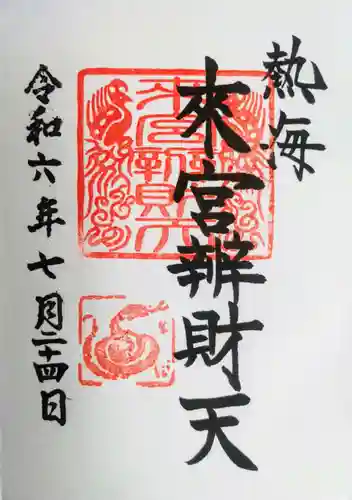 熱海
來宮辨財天
令和六年七月二十四日